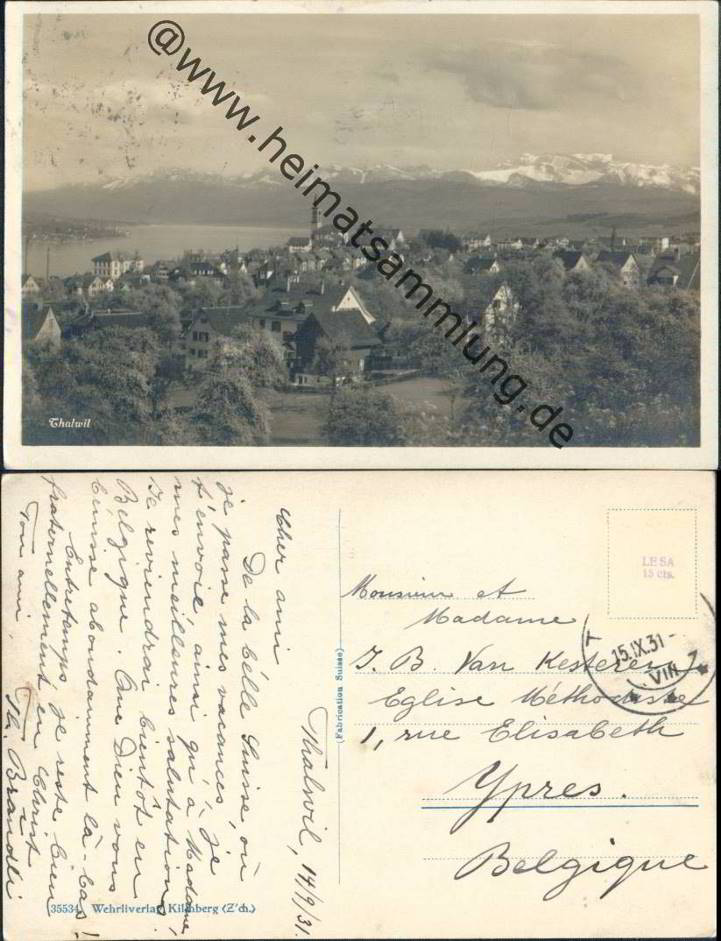 @www.heimatsammlung.de
Thalwil
Thalwil, 14/9/31.
Cher ami
De la belle Suisse, où
je passe mes vacances, je
t'envoie ainsi qu'à Madame,
mes meilleures salutations.
Je reviendrai bientôt en
Belgique. Que Dieu vous
bénisse abondamment là-bas!
Entretemps je reste bien
fraternellement en Christ
Ton ami,
Th. Brändli
(Fabrication Suisse)
35534 Wehrliverlag Kilchberg (Z'ch.)
LESA
15 cts.
15.IX.31-
VIII
Monsieur et
Madame
J. B. Van Kesteren
Eglise Méthodiste
1, rue Elisabeth
Ypres.
Belgique